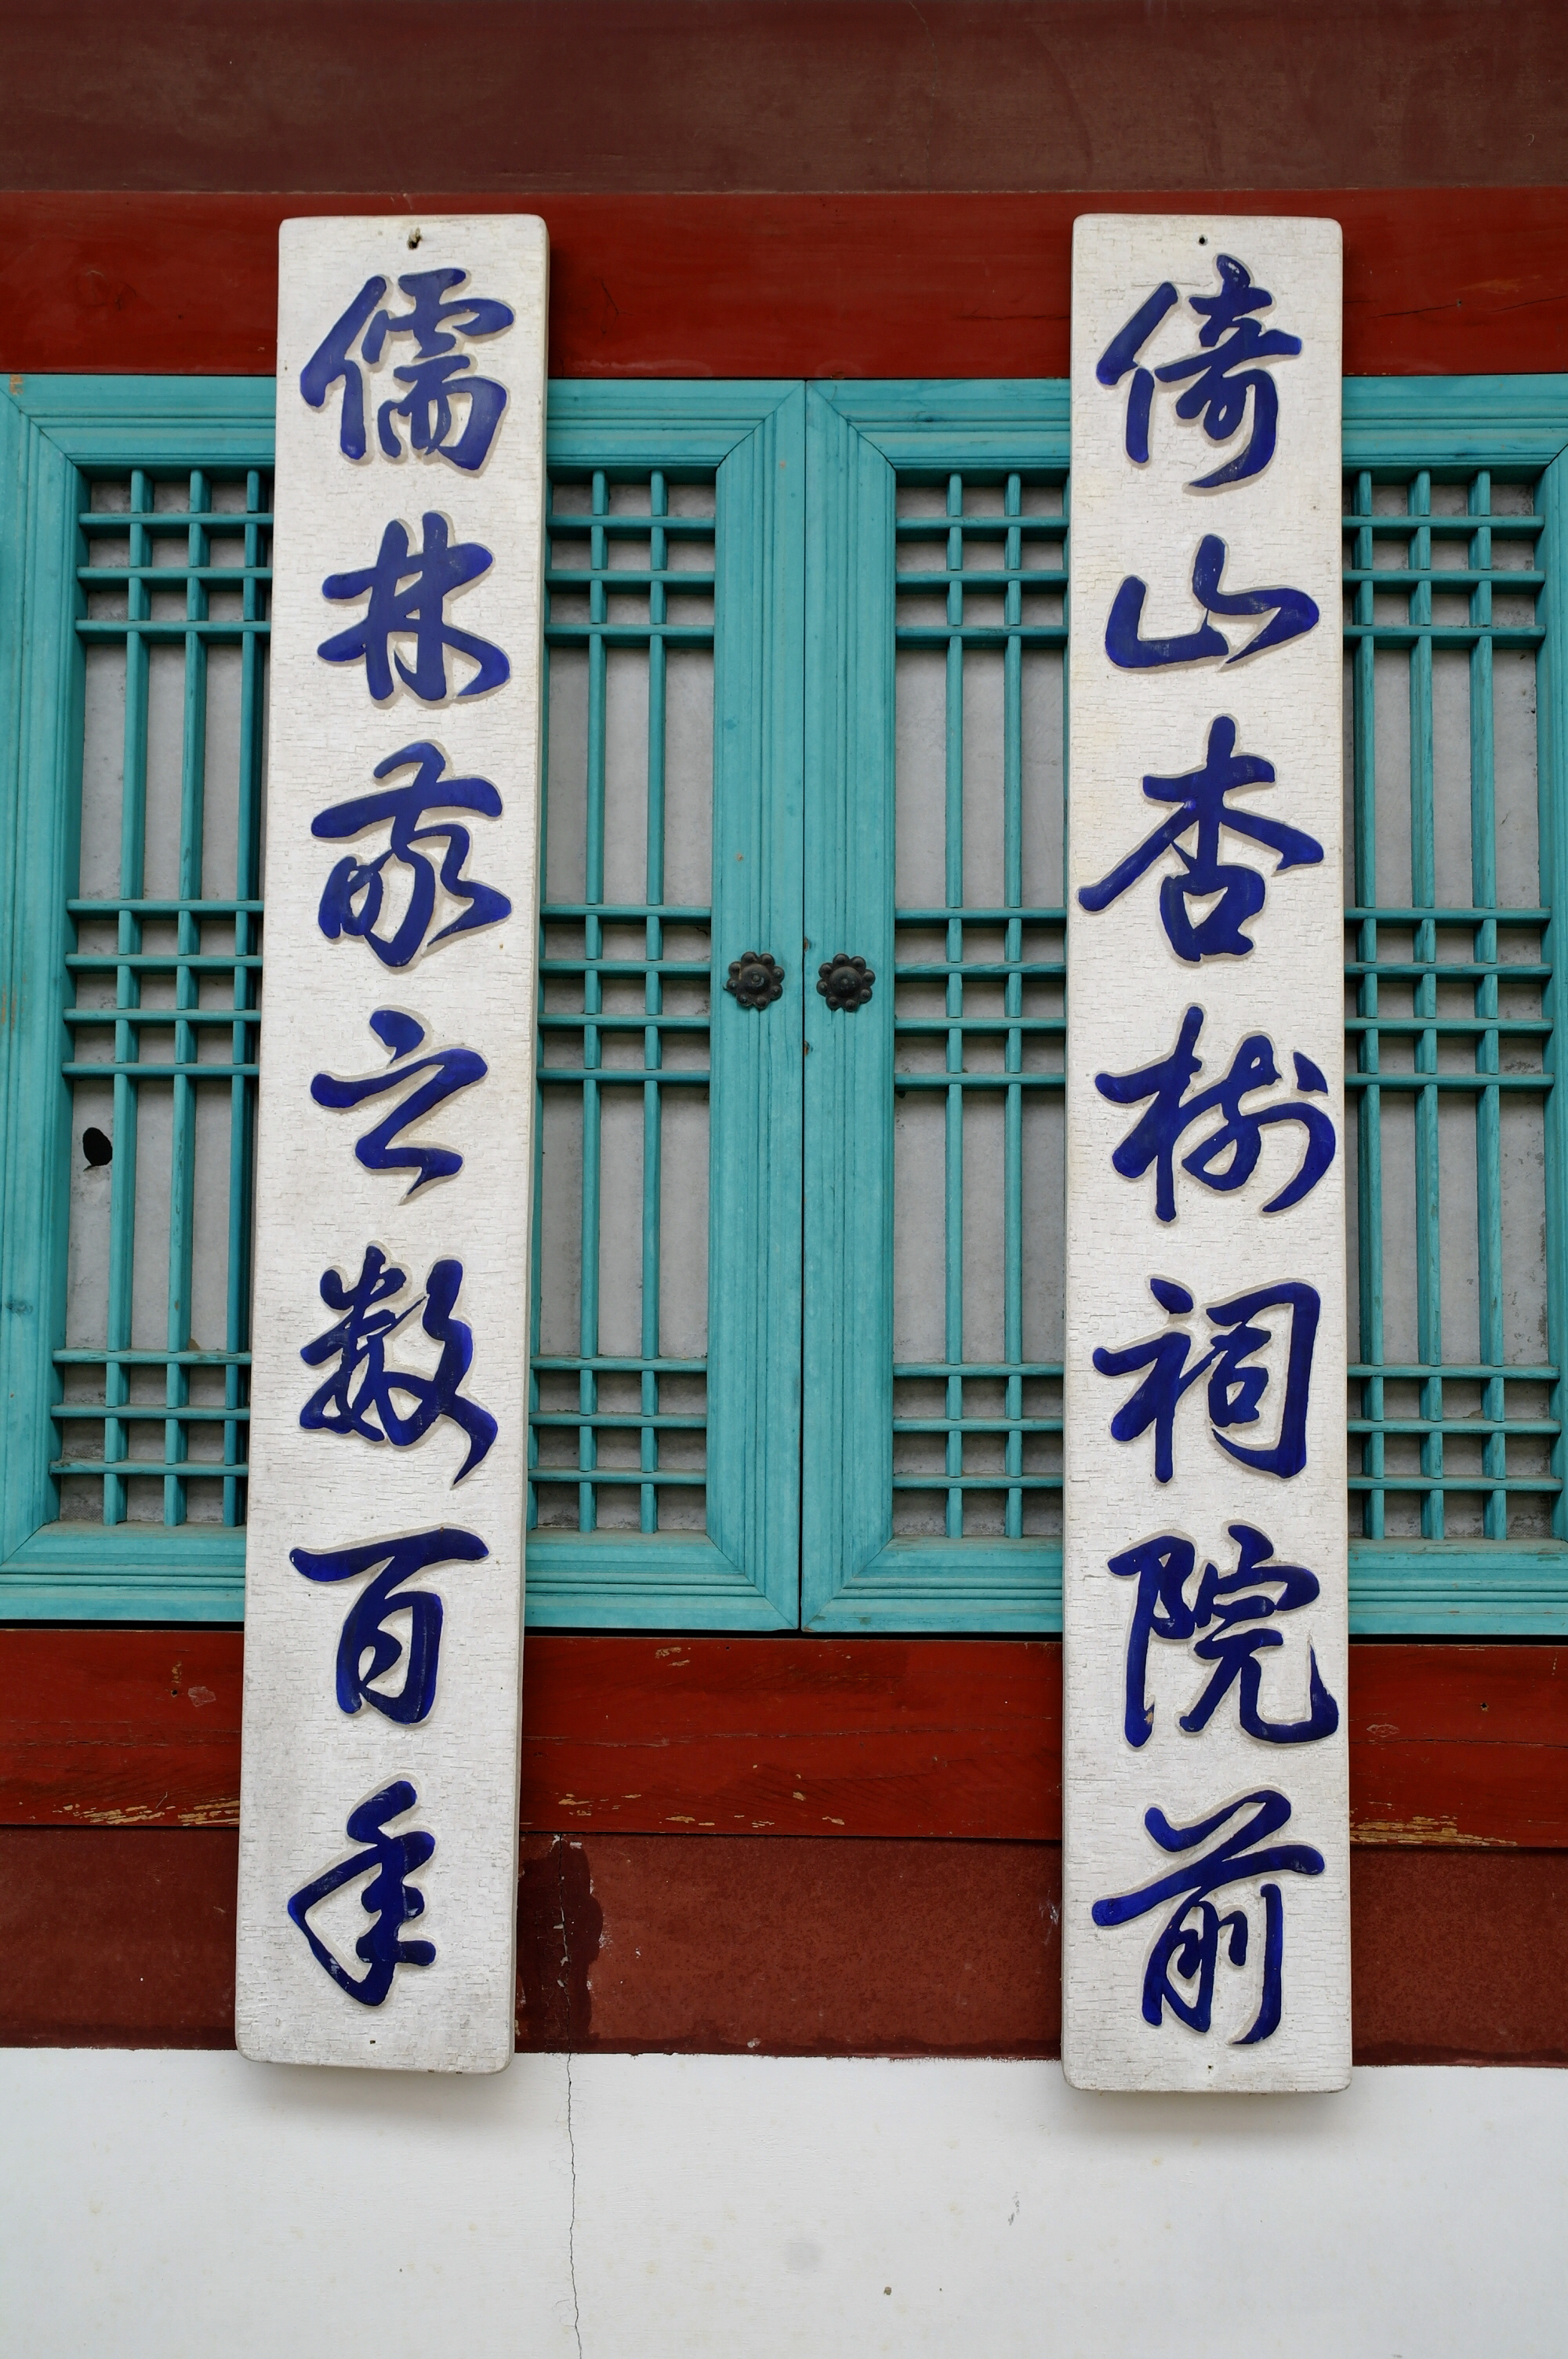 倚山杏樹祠院前
儒林家之數百年